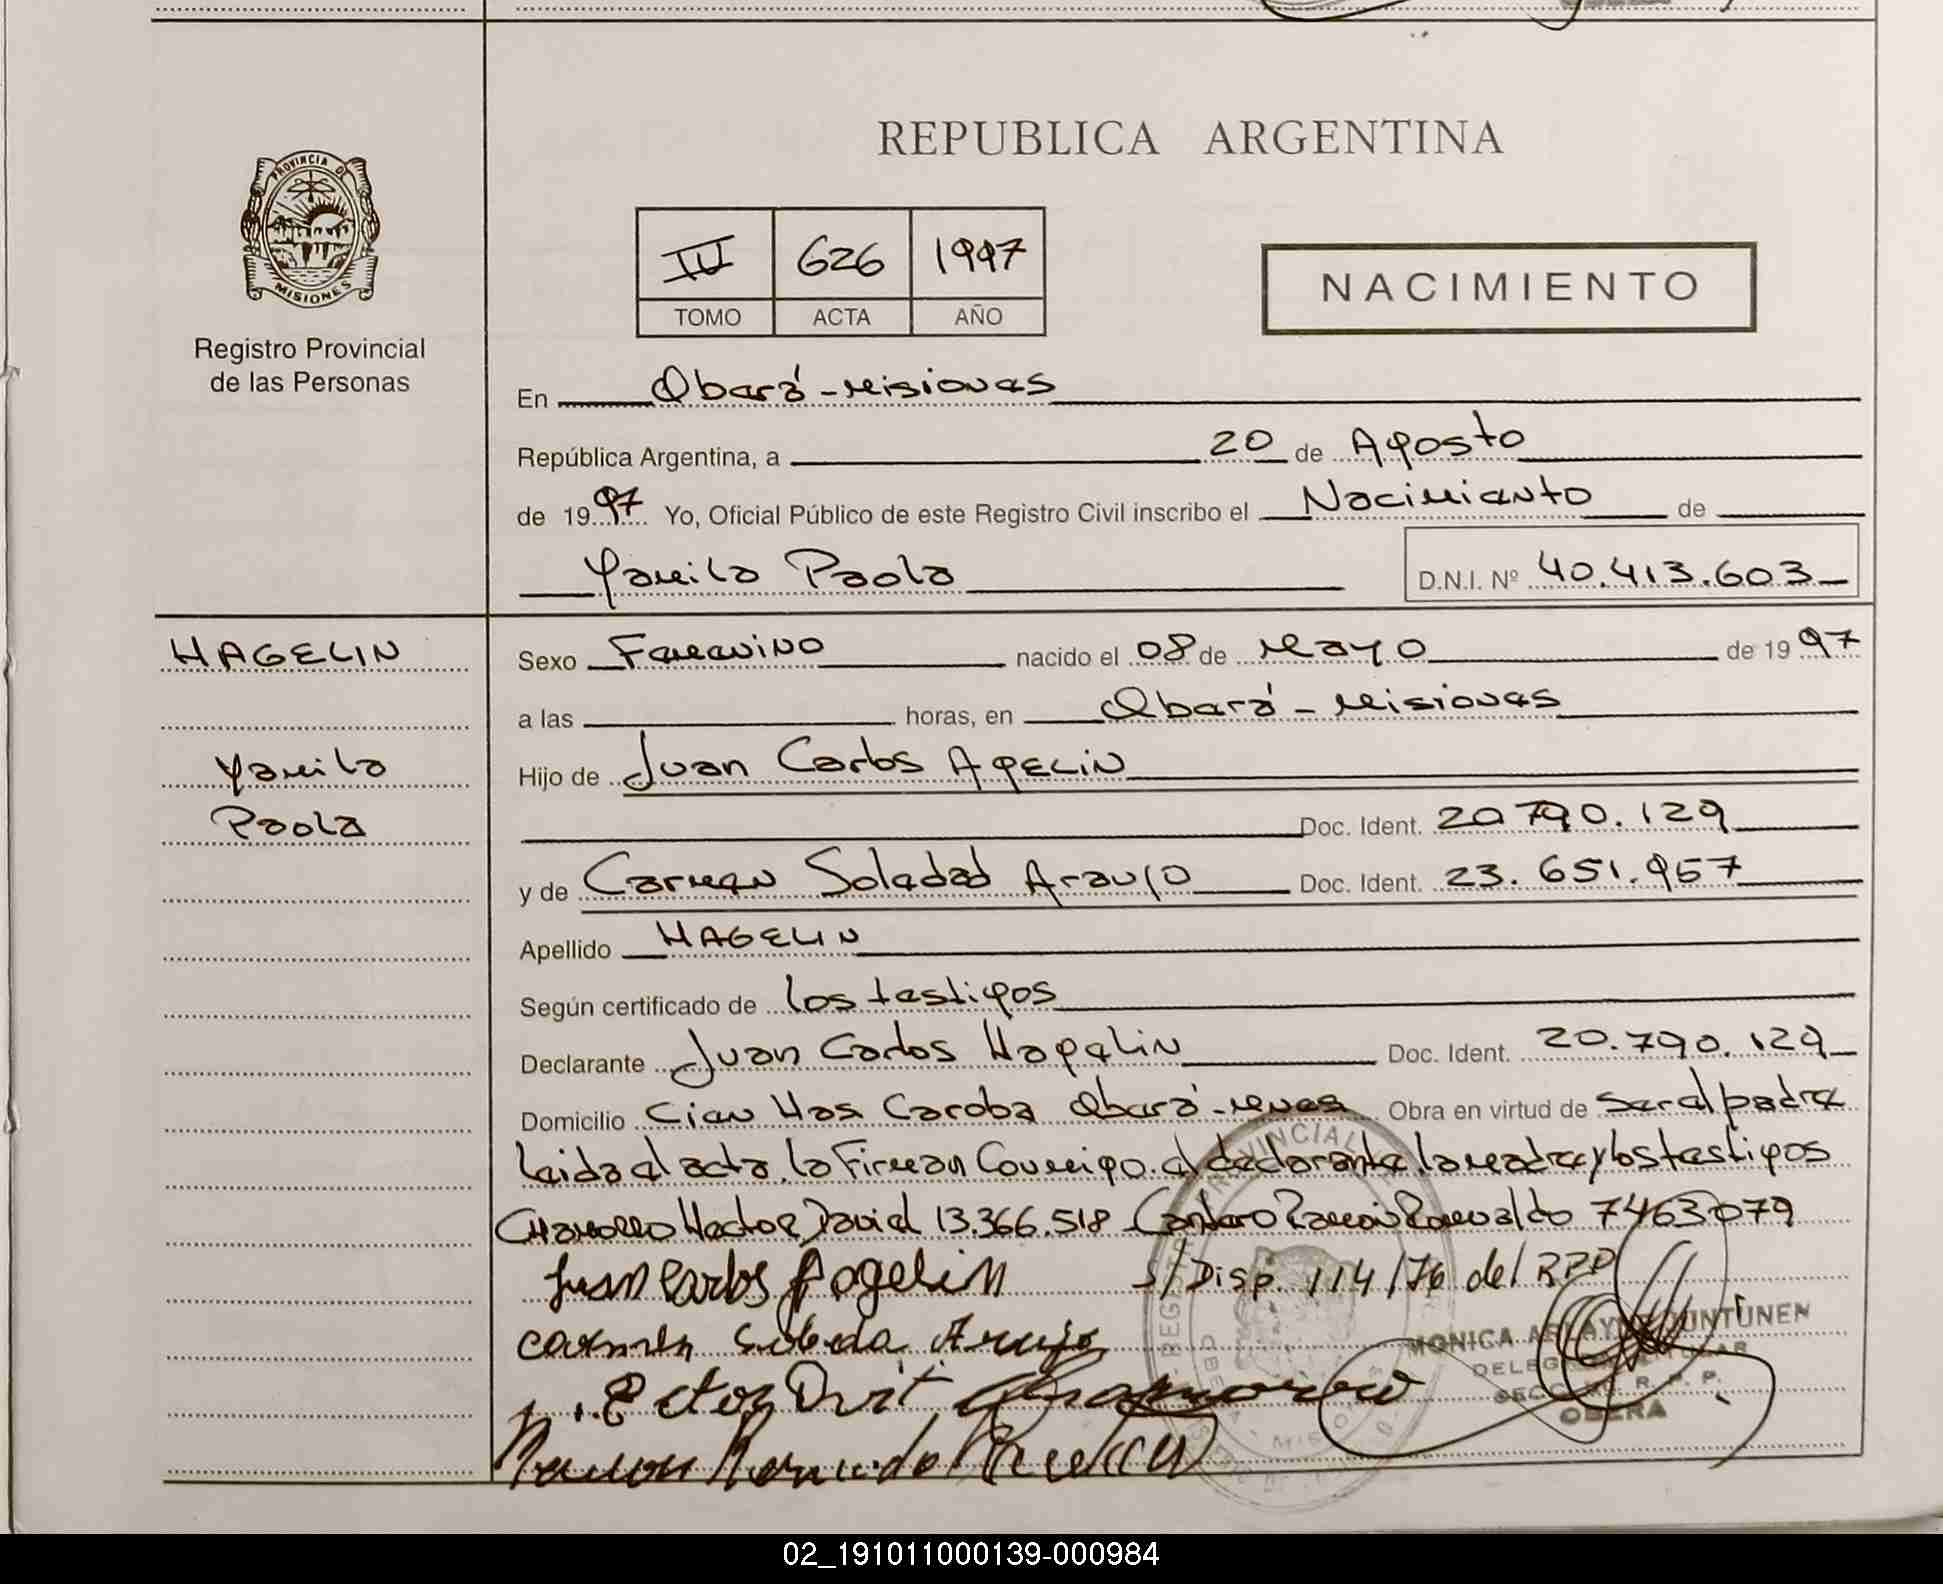 REPUBLICA ARGENTINA
PROVINCIA DE
MISIONES
Registro Provincial
de las Personas
IV 626 1997
TOMO ACTA AÑO
NACIMIENTO
En Oberá - Misiones
República Argentina, a 20 de Agosto
de 1997 Yo, Oficial Público de este Registro Civil inscribo el Nacimiento de
Yamila Paola D.N.I. Nº 40.413.603
HAGELIN
Yamila
Paola
Sexo Femenino nacido el 08 de Mayo de 1997
a las horas, en Oberá - Misiones
Hijo de Juan Carlos AgELIN
Doc. Ident. 20790.129
y de Carmen Soledad Araujo Doc. Ident. 23.651.957
Apellido HAGELIN
Según certificado de los testigos
Declarante Juan Carlos Hagelin Doc. Ident. 20.790.129
Domicilio Cien Has Caroba Oberá - Mnes Obra en virtud de Ser el padre
Leida el acta, la Firman Conmigo. el declarante, la madre y los testigos
Chamorro Hector David 13.366.518 - Cantero Ramon Romualdo 7463079
Juan Carlos Hagelin s/Disp. 114/76 del RPP
carmen Araujo
Ector
Ramon
MONICA
OBERA
02_191011000139-000984